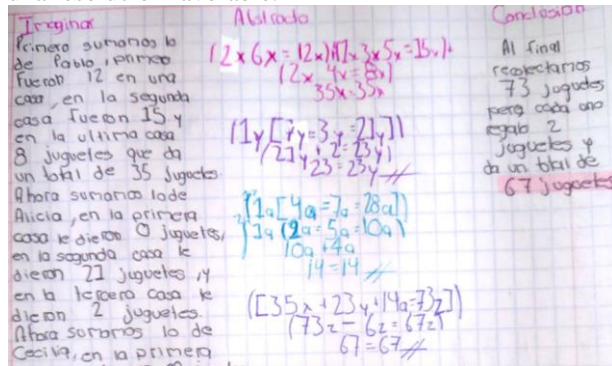 Imaginar
Primero sumamos lo
de Pablo, primero
fueron 12 en una
casa, en la segunda
casa fueron 15 y
en la ultima casa
8 juguetes que da
un total de 35 juguetes.
Ahora sumamos lo de
Alicia, en la primera
casa le dieron 0 juguetes,
en la segunda casa le
dieron 21 juguetes, y
en la tercera casa le
dieron 2 juguetes.
Ahora sumamos lo de
Cecilia, en la primera
Abstracto
(2x6x=12x)+([1x3x5x=15x)+
(2x 4x=8x)
35x=35x
(1y[7y=3y=21y])
(21y+2=23y)
23=23y
(1a[4a=7a=28a])
1a(2a=5a=10a)
10a+4a
14=14
([35x+23y+14a=73z])
(73z-6z=67z)
67=67
Conclusion
Al final
recolectamos
73 juguetes
pero cada uno
regalo 2
juguetes y
da un total de
67 juguetes